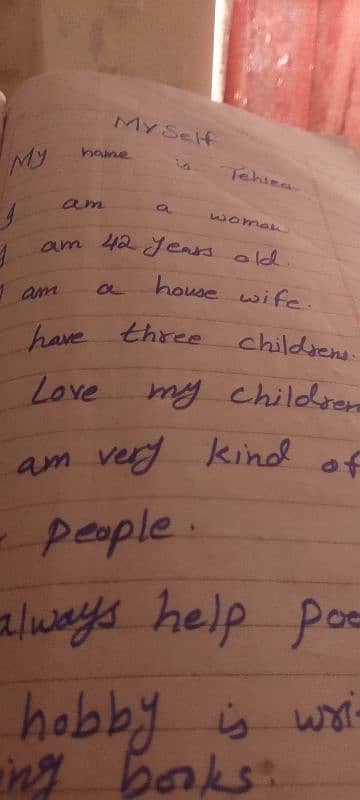 My Self
My name is Tehseen
I am a woman
I am 42 years old.
I am a house wife.
have three childrens.
Love my children
am very kind of
people.
always help poo
hobby is wri-
ing books.